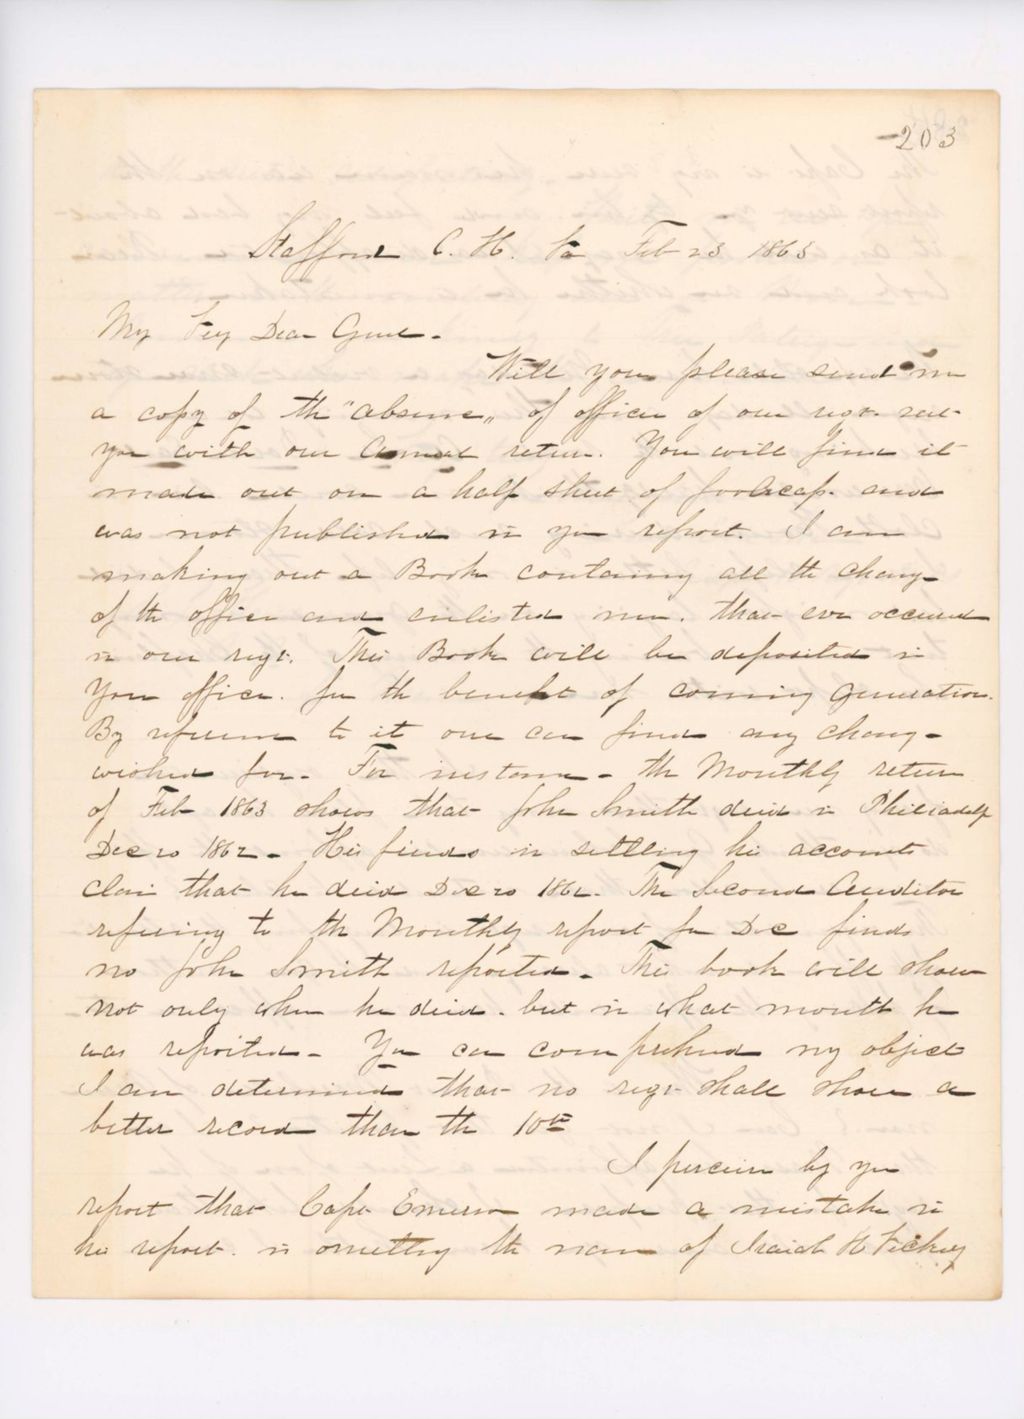 203
Stafford C. H. Va Feb 23 1863
My Very Dear Genl.
Will you please send me
a copy of the "absence" of officers of our regt. sent
you with our Annual return. You will find it
made out on a half sheet of foolscap. and
was not published in your report. I am
making out a Book containing all the changes
of the officers and enlisted men. that ever occurred
in our regt. This Book will be deposited in
Your office. for the benefit of coming generation.
By reference to it one can find any change
wished for. For instance - the Monthly return
of Feb 1863 shows that John Smith died in Philiadelp
Dec 20 1862 - His friends in settling his accounts
claim that he died Dec 20 1862. The Second Auditor
refering to the Monthly report for Dec finds
no John Smith reported. This book will show
not only when he died. but in what month he
was reported. You can comprehend my object
I am determined that no regt shall show a
better record than the 10th
I perceive by your
report that Capt Emerson made a mistake in
his report. in omitting the name of Isaiah H